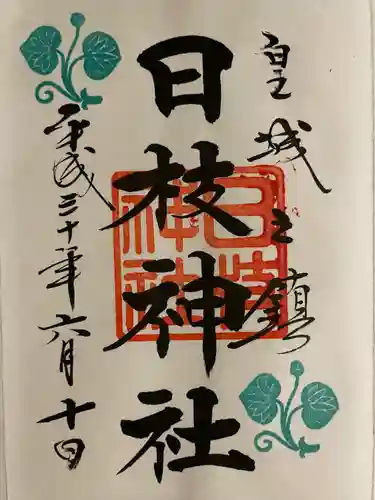 皇城之鎮
日枝神社
平成三十年六月十日